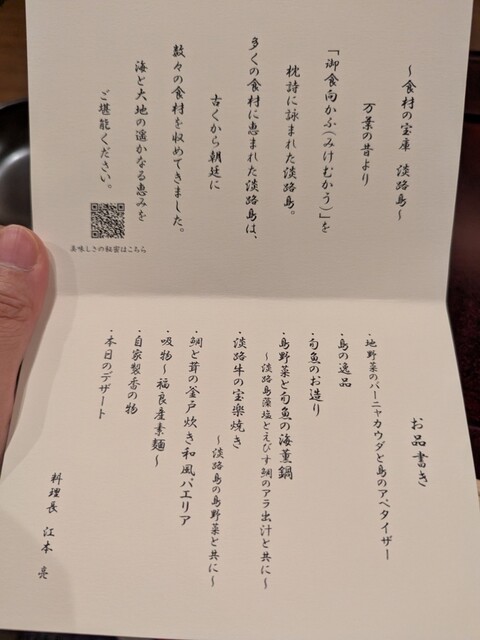 ～食材の宝庫　淡路島～
万葉の昔より
「御食向かふ(みけむかう)」を
枕詩に詠まれた淡路島。
多くの食材に恵まれた淡路島は、
古くから朝廷に
数々の食材を収めてきました。
海と大地の遥かなる恵みを
ご堪能ください。
美味しさの秘密はこちら
お品書き
・地野菜のバーニャカウダと島のアペタイザー
・島の逸品
・旬魚のお造り
・島野菜と旬魚の海薫鍋
～淡路島藻塩とえびす鯛のアラ出汁と共に～
・淡路牛の宝楽焼き
～淡路島の島野菜と共に～
・鯛と茸の釜戸炊き和風パエリア
・吸物～福良産素麺～
・自家製香の物
・本日のデザート
料理長　江本　亮